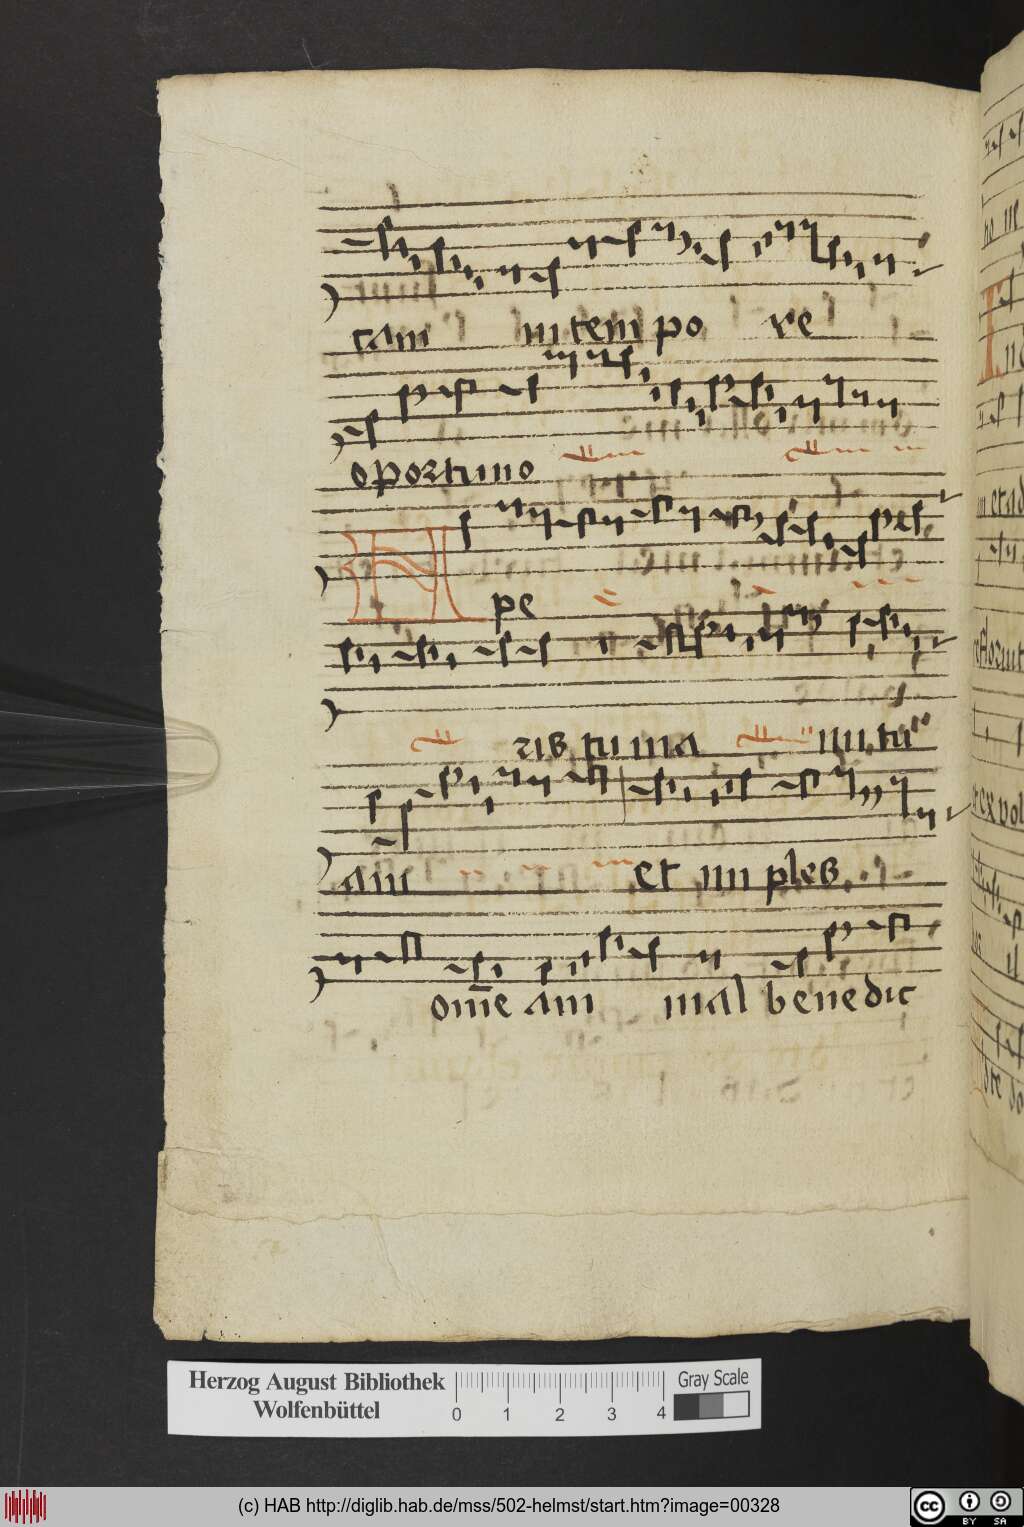 cam in tem po re
oportuno
A pe
ris tu ma nu tu
am et im ples
om̄e am mal benedic
Herzog August Bibliothek
Wolfenbüttel
0 1 2 3 4
Gray Scale
(c) HAB http://diglib.hab.de/mss/502-helmst/start.htm?image=00328
cc BY SA